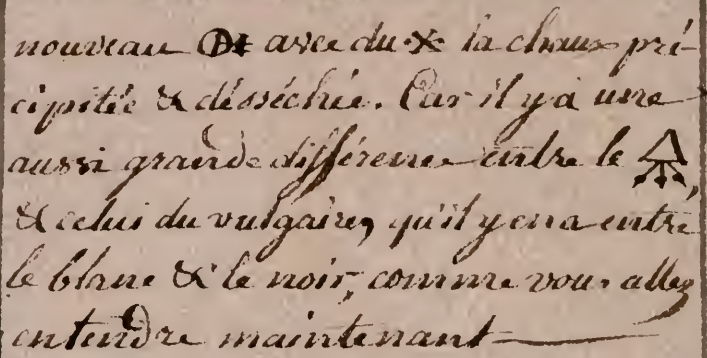 nouveau avec du la chaux pré-
cipitée & désséchée. Car il y à une
aussi grande différence entre le
& celui du vulgaire, qu'il y en a entre
le blanc & le noir, comme vous allez
entendre maintenant